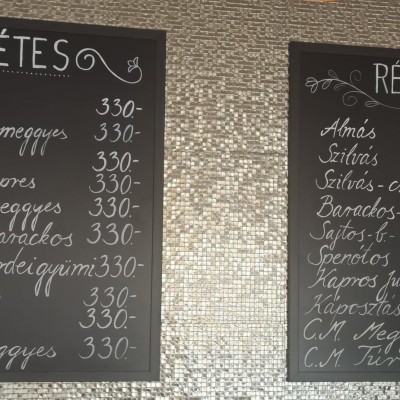 ÉTES
330.-
meggyes 330.-
330.-
pres 330.-
eggyes 330.-
arackos 330.-
rdeigyümi 330.-
330.-
330.-
ggyes 330.-
RÉ
Almás
Szilvás
Szilvás-c
Barackos-
Sajtos-b.-
Spenótos
Kapros Ju
Káposztás
C.M. Meg
C.M. Túr